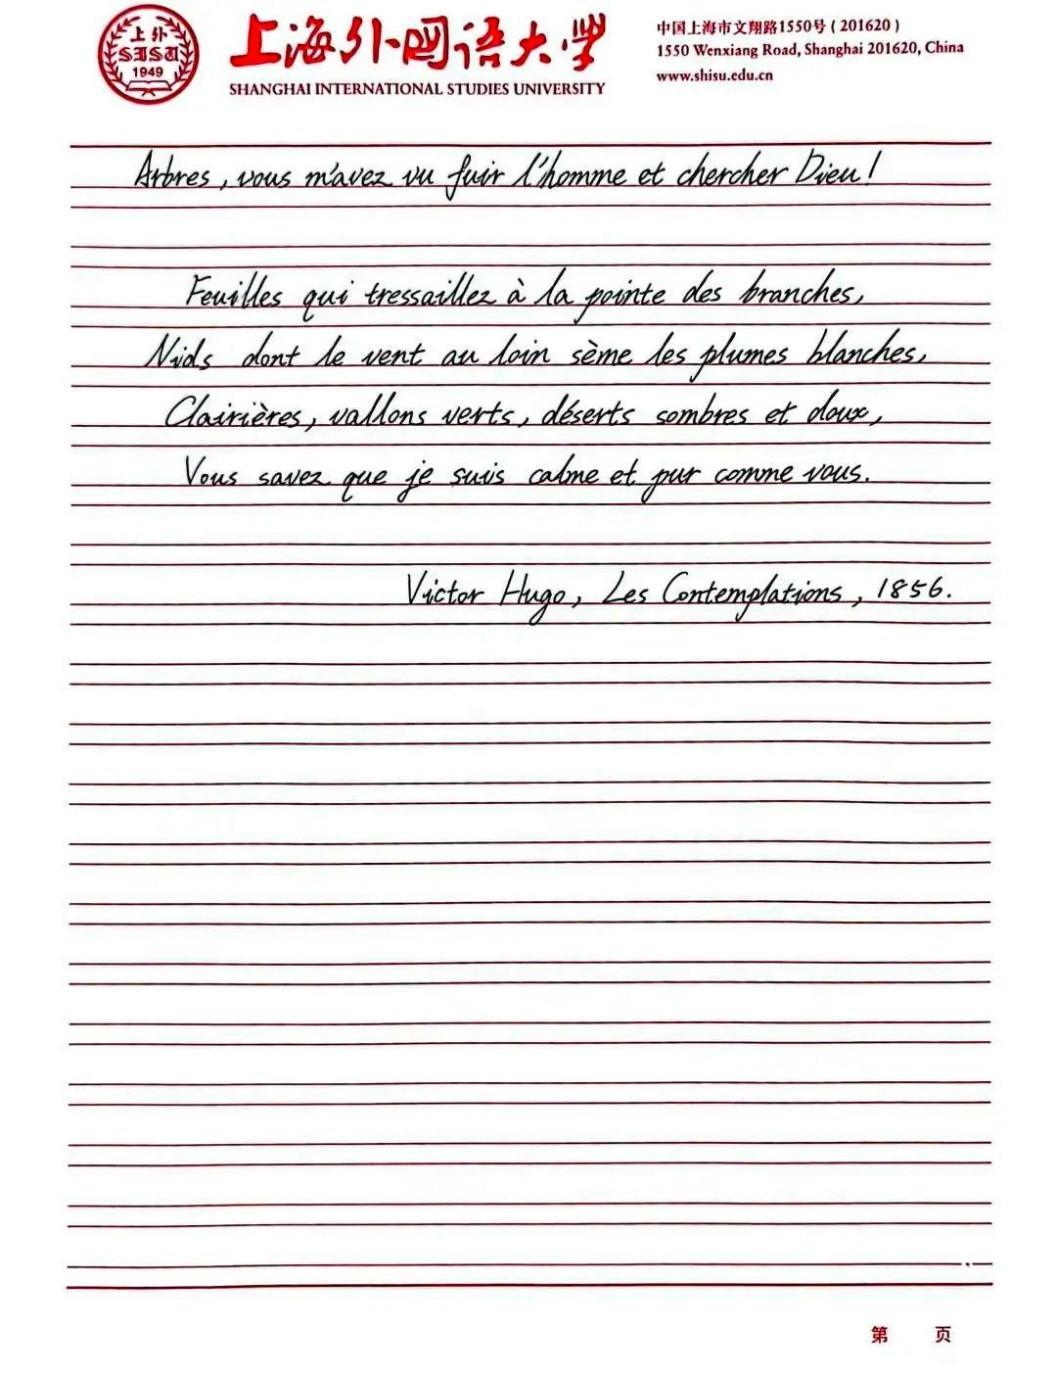 上外
SISU
1949
上海外国语大学
SHANGHAI INTERNATIONAL STUDIES UNIVERSITY
中国上海市文翔路1550号 ( 201620 )
1550 Wenxiang Road, Shanghai 201620, China
www.shisu.edu.cn
Arbres, vous m'avez vu fuir l'homme et chercher Dieu!
Feuilles qui tressaillez à la pointe des branches,
Nids dont le vent au loin sème les plumes blanches,
Clairières, vallons verts, déserts sombres et doux,
Vous savez que je suis calme et pur comme vous.
Victor Hugo, Les Contemplations, 1856.
第 页